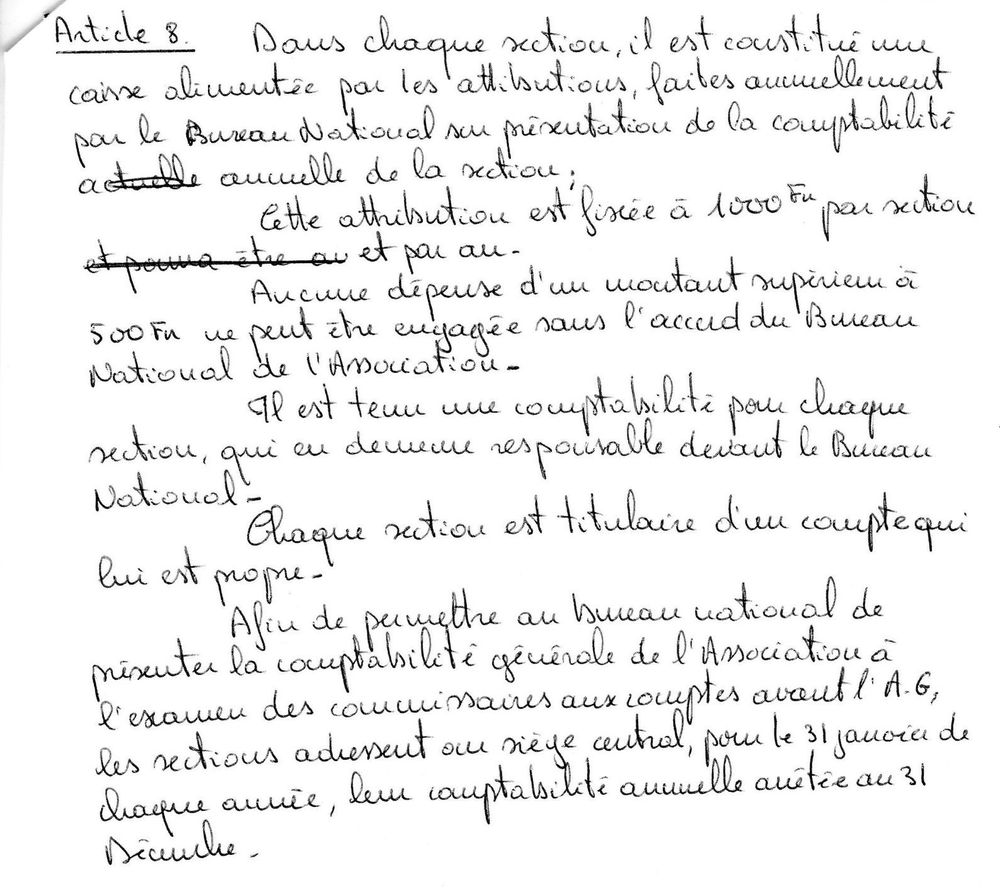 Article 8. Dans chaque section, il est constitué une
caisse alimentée par les attributions, faites annuellement
par le Bureau National sur présentation de la comptabilité
actuelle annuelle de la section ;
Cette attribution est fixée à 1000 Frs par section
et pourra être au et par an -
Aucune dépense d'un montant supérieur à
500 Frs ne peut être engagée sans l'accord du Bureau
National de l'Association -
Il est tenu une comptabilité pour chaque
section, qui en demeure responsable devant le Bureau
National -
Chaque section est titulaire d'un compte qui
lui est propre -
Afin de permettre au bureau national de
présenter la comptabilité générale de l'Association à
l'examen des commissaires aux comptes avant l'A.G,
les sections adressent au siège central, pour le 31 janvier de
chaque année, leur comptabilité annuelle arrêtée au 31
Décembre -